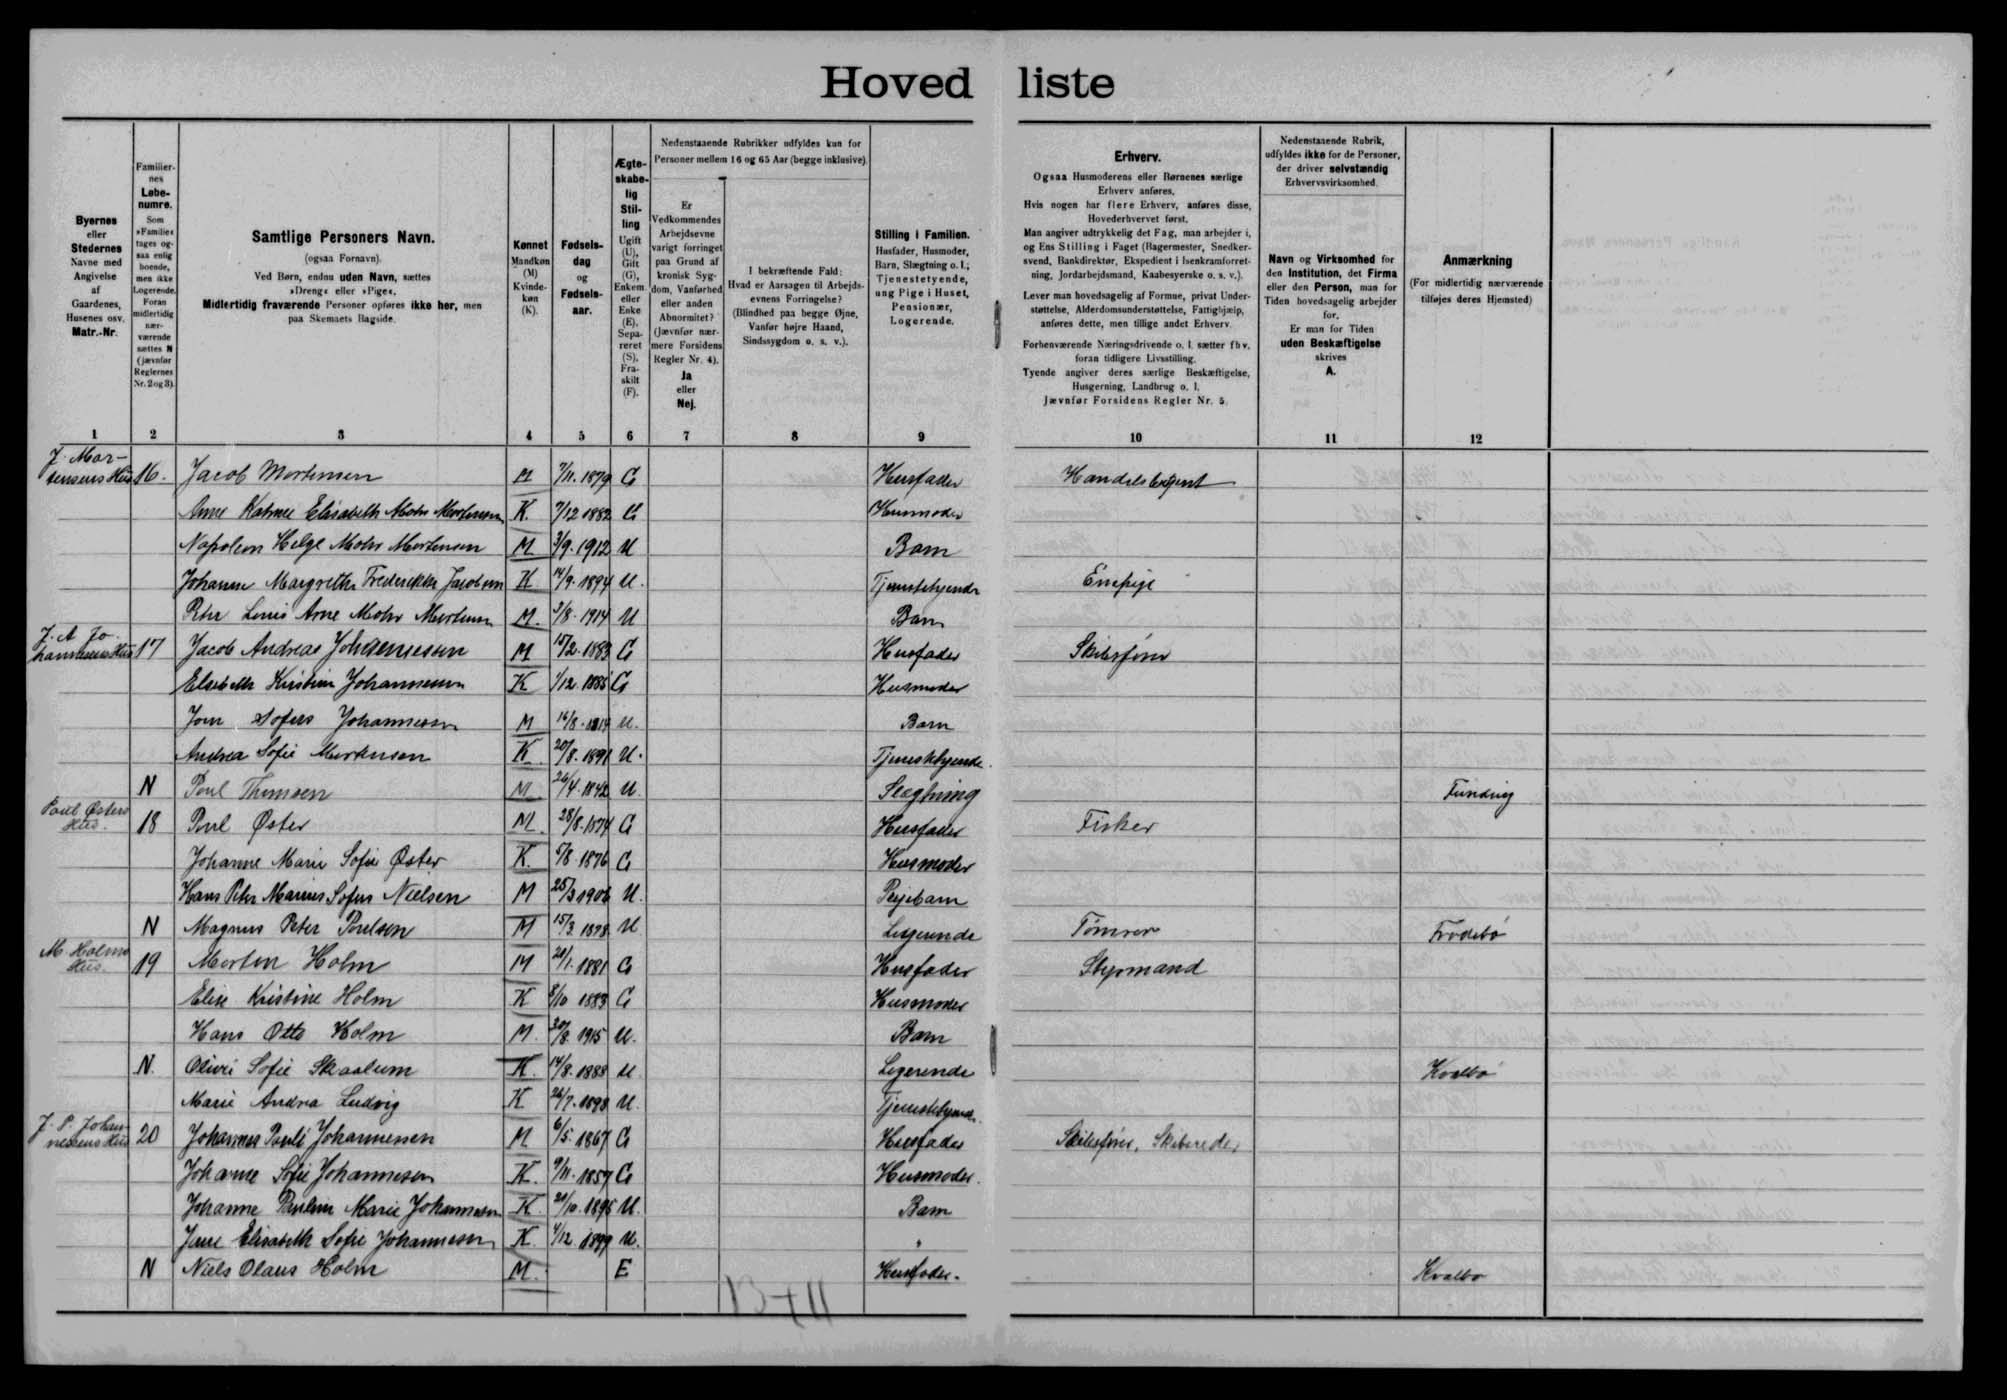 Hoved liste
Byernes
eller
Stedernes
Navne med
Angivelse
af
Gaardenes,
Husenes osv.
Matr.-Nr.
Familier-
nes
Løbe-
numre.
Som
»Familie«
tages og-
saa enlig
boende,
men ikke
Logerende.
Foran
midlertidig
nær-
værende
sættes N
(jævnfør
Reglernes
Nr. 2 og 3).
Samtlige Personers Navn.
(ogsaa Fornavn).
Ved Børn, endnu uden Navn, sættes
»Dreng« eller »Pige«,
Midlertidig fraværende Personer opføres ikke her, men
paa Skemaets Bagside.
Kønnet
Mandkøn
(M)
Kvinde-
køn
(K).
Fødsels-
dag
og
Fødsels-
aar.
Ægte-
skabe-
lig
Stil-
ling
Ugift
(U),
Gift
(G),
Enkem.
eller
Enke
(E),
Sepa-
reret
(S),
Fra-
skilt
(F).
Nedenstaaende Rubrikker udfyldes kun for
Personer mellem 16 og 65 Aar (begge inklusive).
Er
Vedkommendes
Arbejdsevne
varigt forringet
paa Grund af
kronisk Syg-
dom, Vanførhed
eller anden
Abnormitet?
(Jævnfør nær-
mere Forsidens
Regler Nr. 4).
Ja
eller
Nej.
I bekræftende Fald:
Hvad er Aarsagen til Arbejds-
evnens Forringelse?
(Blindhed paa begge Øjne,
Vanfør højre Haand,
Sindssygdom o. s. v.).
Stilling i Familien.
Husfader, Husmoder,
Barn, Slægtning o. l.;
Tjenestetyende,
ung Pige i Huset,
Pensionær,
Logerende.
Erhverv.
Ogsaa Husmoderens eller Børnenes særlige
Erhverv anføres.
Hvis nogen har flere Erhverv, anføres disse,
Hovederhvervet først.
Man angiver udtrykkelig det Fag, man arbejder i,
og Ens Stilling i Faget (Bagermester, Snedker-
svend, Bankdirektør, Ekspedient i Isenkramforret-
ning, Jordarbejdsmand, Kaabesyerske o. s. v.).
Lever man hovedsagelig af Formue, privat Under-
støttelse, Alderdomsunderstøttelse, Fattighjælp,
anføres dette, men tillige andet Erhverv.
Forhenværende Næringsdrivende o. l. sætter fhv.
foran tidligere Livsstilling.
Tyende angiver deres særlige Beskæftigelse,
Husgerning, Landbrug o. l.
Jævnfør Forsidens Regler Nr. 5.
Nedenstaaende Rubrik,
udfyldes ikke for de Personer,
der driver selvstændig
Erhvervsvirksomhed.
Navn og Virksomhed for
den Institution, det Firma
eller den Person, man for
Tiden hovedsagelig arbejder
for.
Er man for Tiden
uden Beskæftigelse
skrives
A.
Anmærkning
(For midlertidig nærværende
tilføjes deres Hjemsted)
1 2 3 4 5 6 7 8 9 10 11 12
J. Mor-
tensens Hus 16. Jacob Mortensen M 7/11. 1879 G Husfader Handelsagent
Anne Katrine Elisabeth Mohr Mortensen K. 7/12 1882 G Husmoder
Napoleon Helge Mohr Mortensen M 3/9. 1912 U Barn
Johanne Margrethe Frederikke Jacobsen K 14/9. 1894 U. Tjenestetyende Enepige
Peter Louis Arne Mohr Mortensen M. 3/8. 1914 U Barn
J. A. Jo-
hannesens Hus 17 Jacob Andreas Johannessen M 15/2. 1883 G Husfader Skibsfører
Elsebeth Kristine Johannesen K 1/12. 1885 G Husmoder
Jom Sofus Johannesen M 16/8. 1914 U. Barn
Andrea Sofie Mortensen K. 20/8. 1891 U. Tjenestetyende.
N Poul Thomsen M 26/4. 1842 U. Slægtning Funding
Poul Østers
Hus. 18 Poul Øster M. 28/8. 1874 G Husfader Fisker
Johanne Marie Sofie Øster K. 5/8. 1876 G Husmoder
Hans Peter Marius Sofus Nielsen M 25/3 1906 U. Plejebarn
N Magnus Peter Poulsen M 15/3. 1878 U Logerende Tømrer Frodebø
M. Holms
Hus. 19 Morten Holm M 20/1. 1881 G Husfader Styrmand
Elise Kristine Holm K 8/10 1883 G Husmoder
Hans Otto Holm M. 20/8. 1915 U. Barn
N. Olivie Sofie Skaalum K. 14/8. 1888 U Logerende Kvalbø
Marie Andrea Ludvig K 26/7. 1898 U. Tjenestetyende.
J. P. Johan-
nessens Hus 20 Johannes Pauli Johannessen M 6/5. 1867 G Husfader Skibsfører, Skibsreder
Johanne Sofie Johannesen K. 9/11. 1857 G Husmoder.
Johanne Pauline Marie Johannesen K. 20/10. 1895 U. Barn
Jane Elisabeth Sofie Johannesen K. 4/12. 1899 U. "
N Niels Olaus Holm M. E Husfader. Kvalbø
13+11